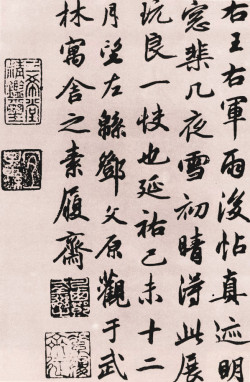 右王右軍雨後帖真迹明
窓棐几夜雪初晴淂此展
玩良一快也延祐己未十二
月望左緜鄧文原觀于武
林寓舍之素履齋